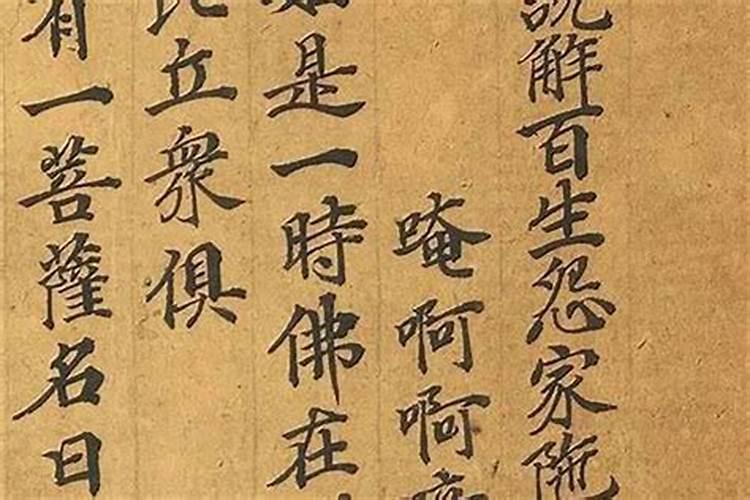 説觧百生怨家陁
唵啊啊
如是一時佛在
比立衆俱
有一菩薩名曰